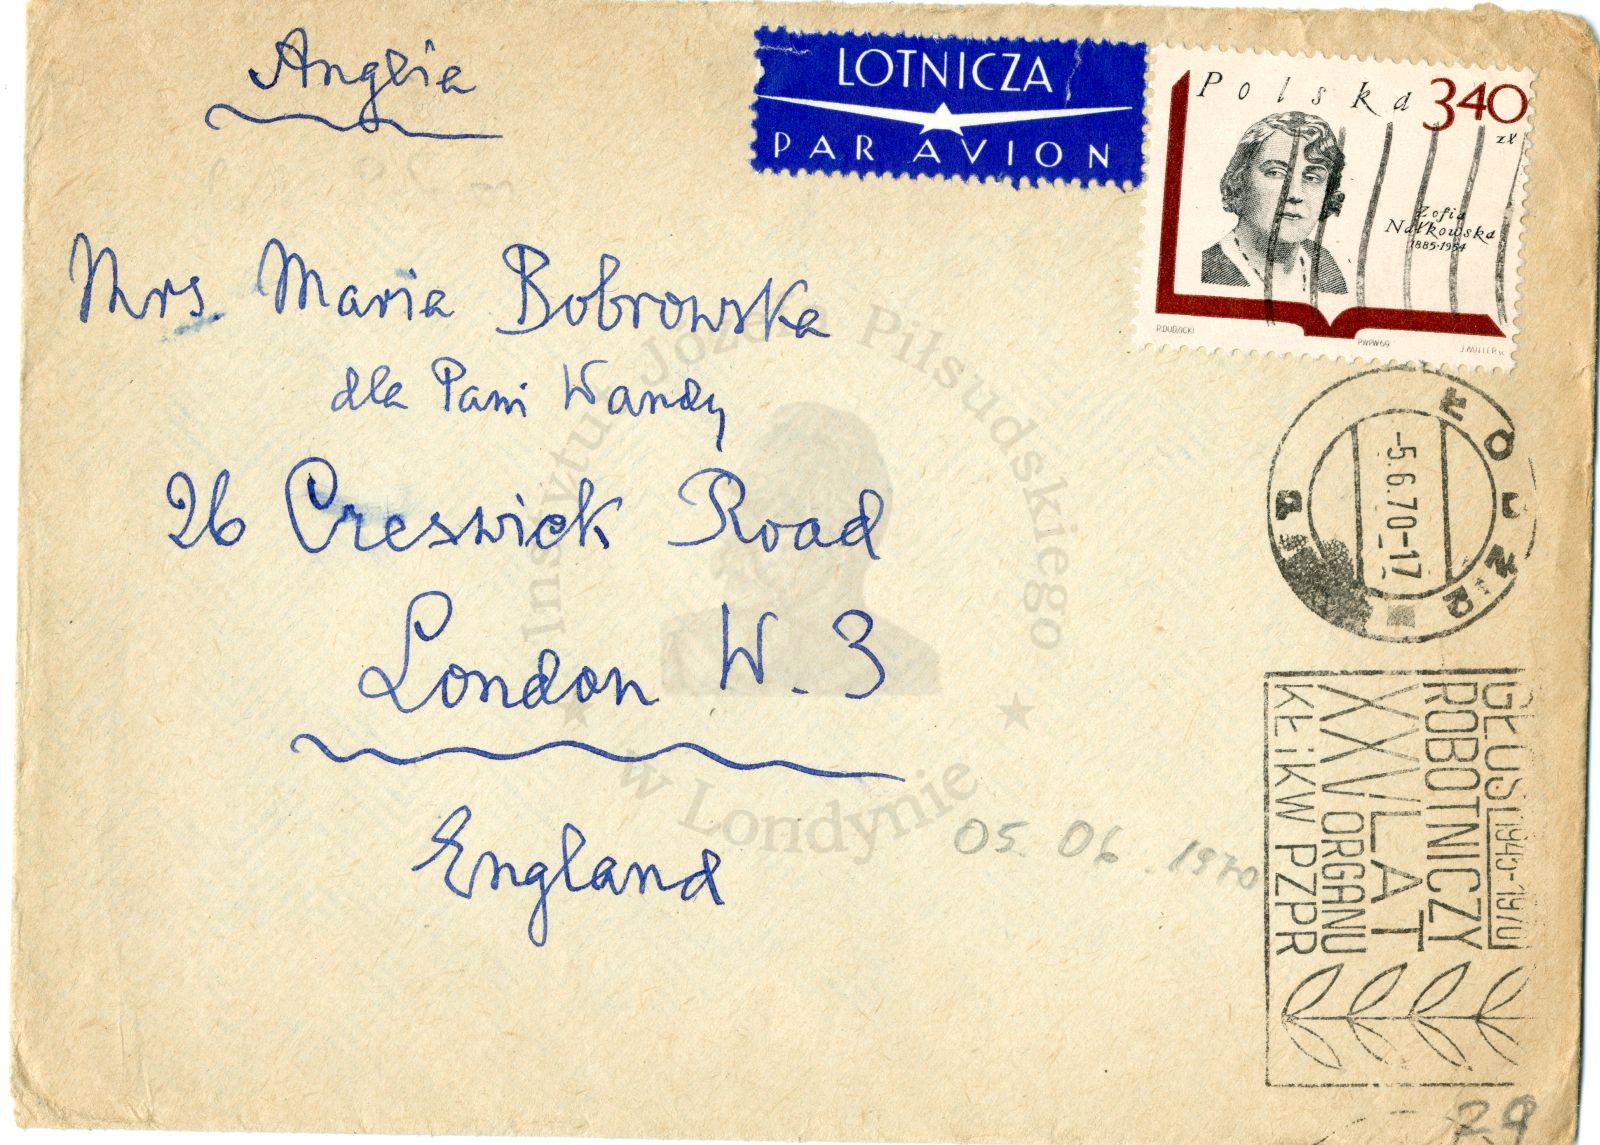 Anglia
LOTNICZA
PAR AVION
Polska 340
zł
Zofia
Nałkowska
1885-1954
PWPW69
Mrs. Maria Bobrowska
dla Pani Wandy
26 Creswick Road
London W. 3
England
ŁÓDŹ
-5.6.70-17
GŁOS 1945-1970
ROBOTNICZY
XXV LAT
ORGANU
KŁ i KW PZPR
05. 06. 1970
Instytut Józefa Piłsudskiego
w Londynie